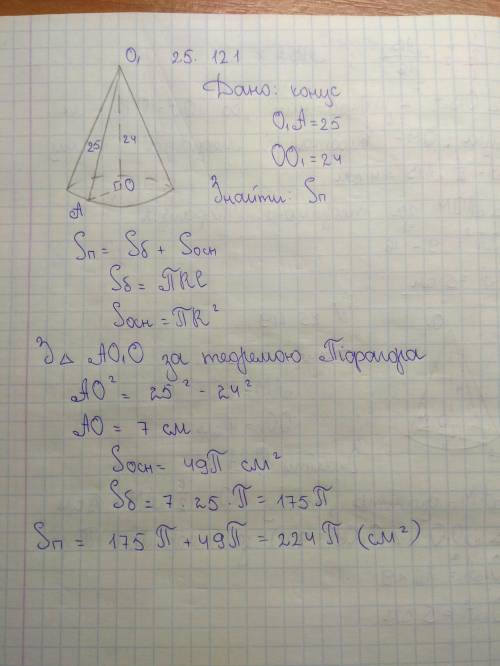 O₁ 25. 121
Дано: конус
O₁A = 25
OO₁ = 24
Знайти: Sп
25
24
O
A
Sп = Sб + Sосн
Sб = ПRl
Sосн = ПR²
З △ AO₁O за теоремою Піфагора
AO² = 25² - 24²
AO = 7 см
Sосн = 49П см²
Sб = 7 · 25 · П = 175П
Sп = 175П + 49П = 224П (см²)